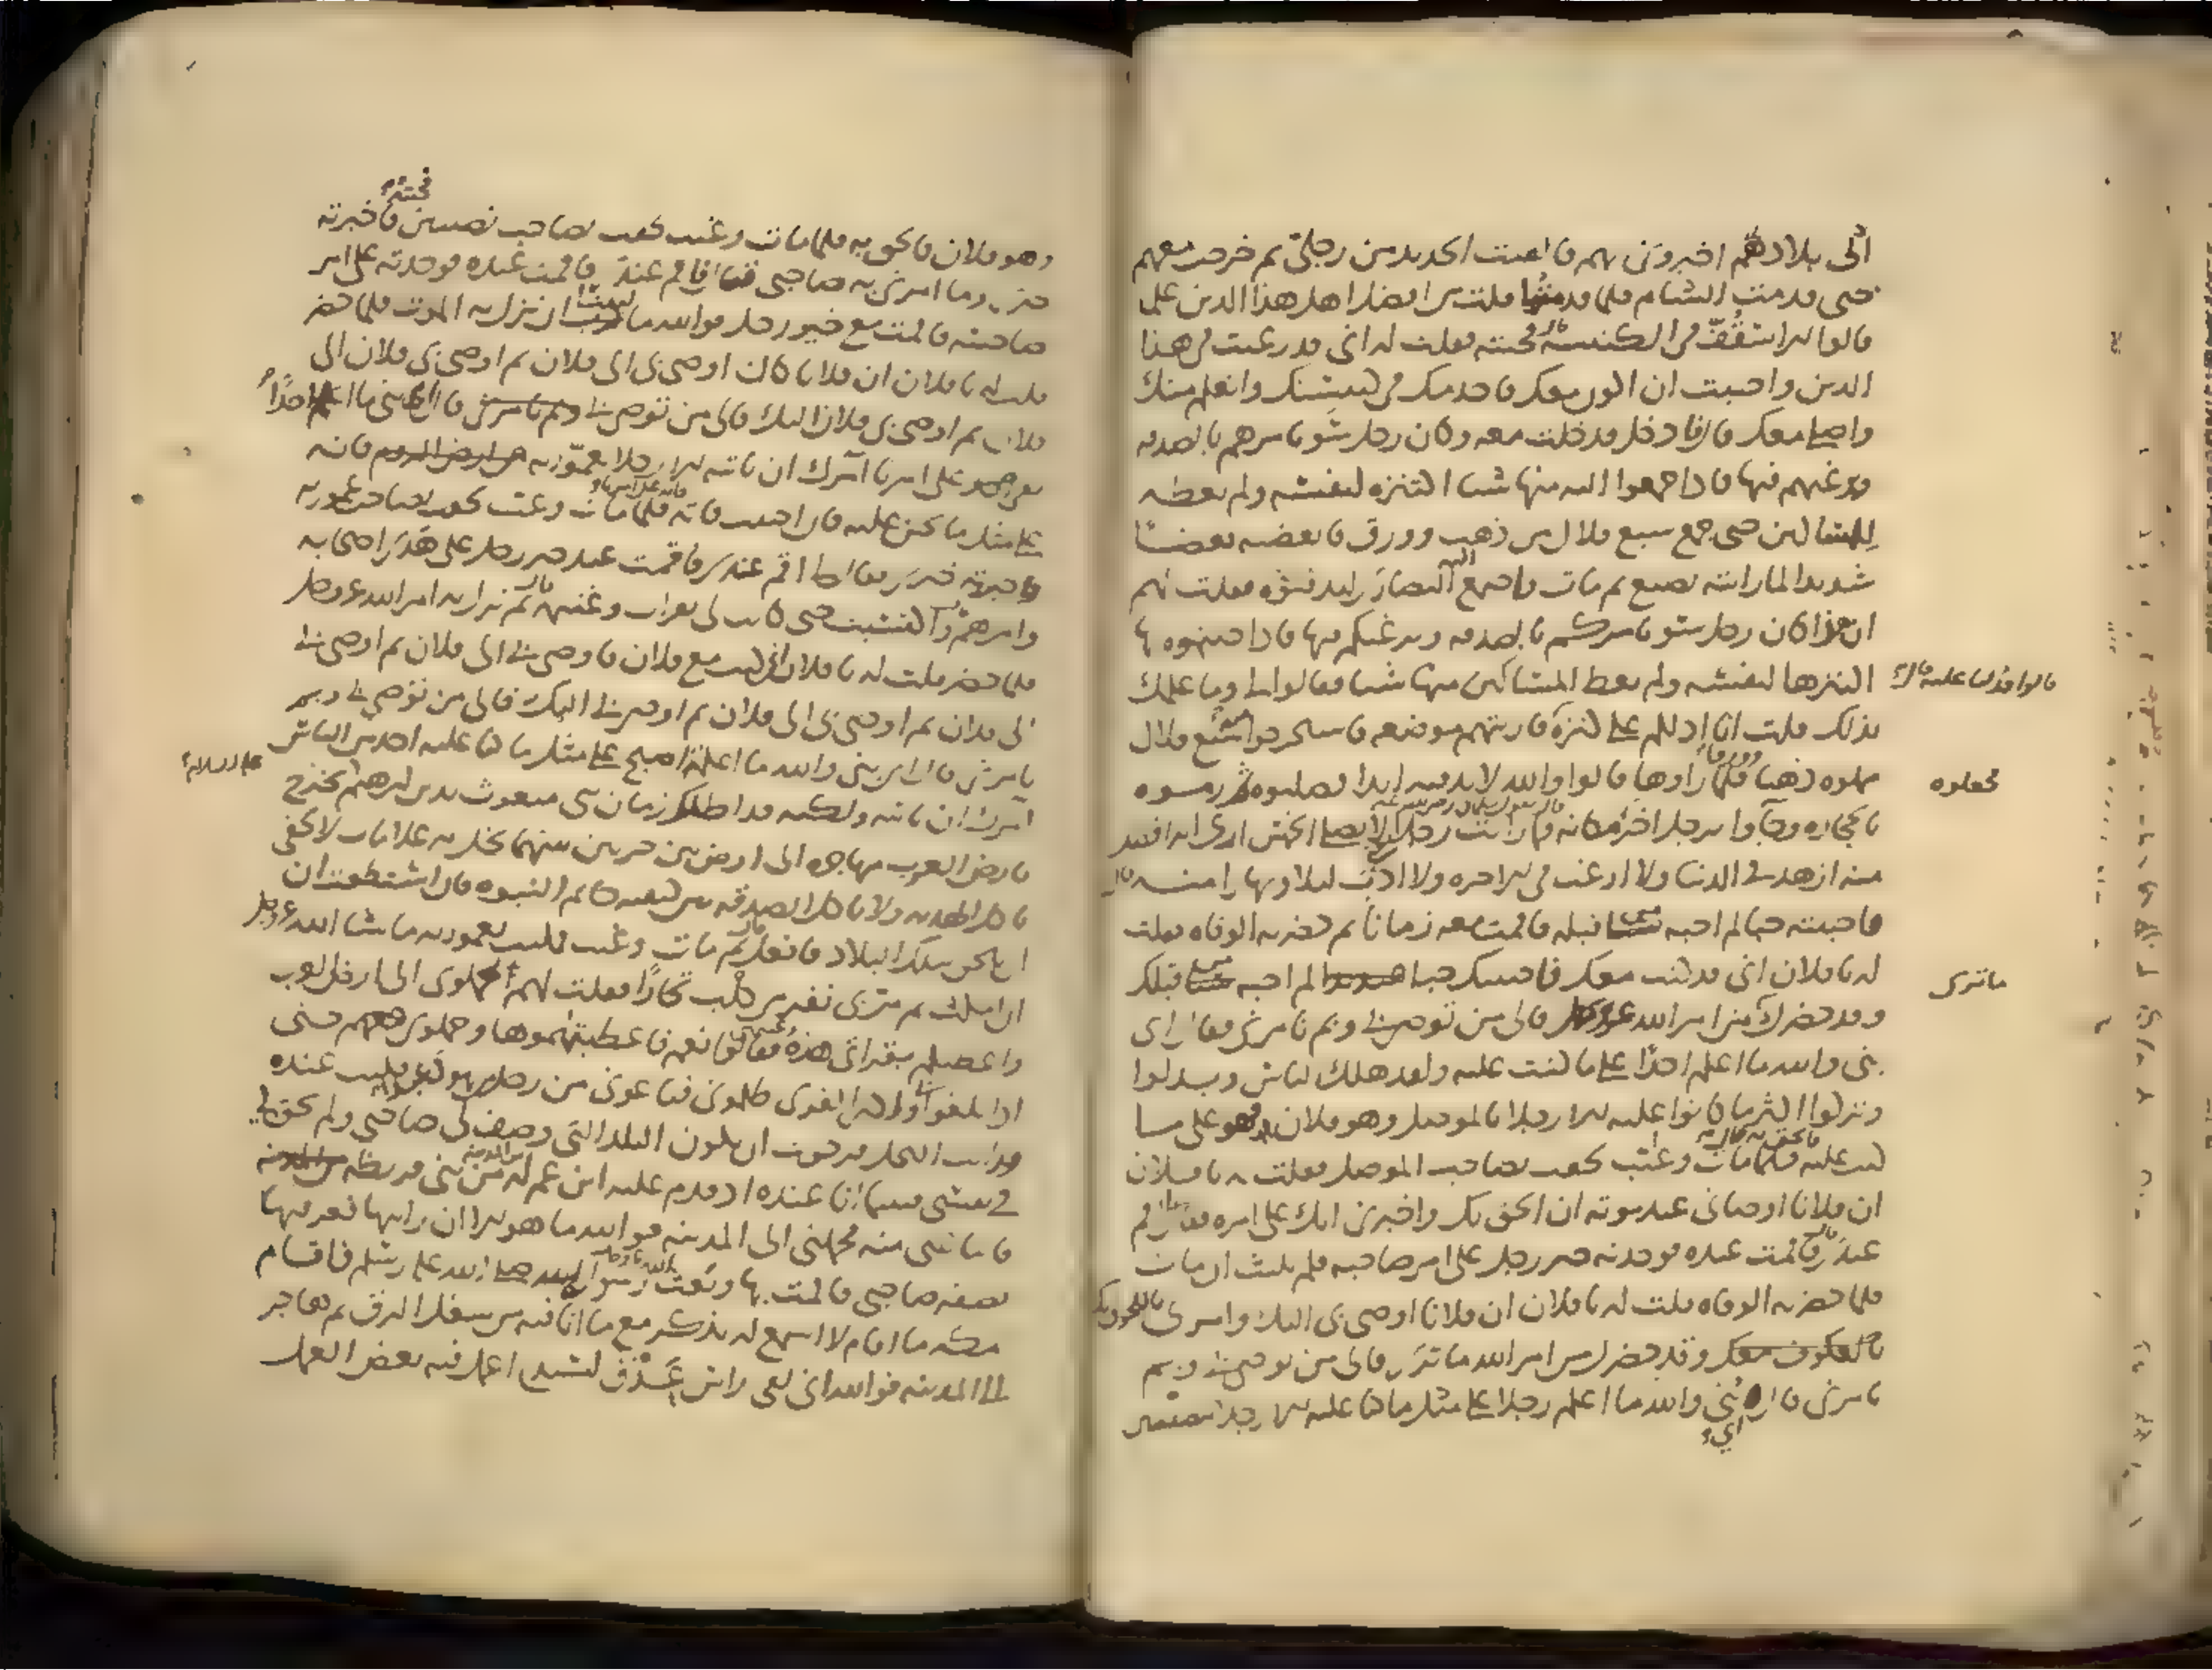 الى بلادهم اخبروني بهم فالقيت الحديد من رجلي ثم خرجت معهم
حتى قدمت الشام فلما قدمتها قلت من افضل اهل هذا الدين علما
قالوا الاسقف في الكنيسة فجئته فقلت له اني قد رغبت في هذا
الدين واحببت ان اكون معك فاخدمك في كنيستك واتعلم منك
واصلي معك قال فادخل فدخلت معه وكان رجل سو يامرهم بالصدقه
ويرغبهم فيها فاذا جمعوا اليه منها شيا اكتنزه لنفسه ولم يعطه
المساكين حتى جمع سبع قلال من ذهب وورق فابغضته بغضا
شديدا لما رايته يصنع ثم مات واجتمع اليه النصارى ليدفنوه فقلت لهم
ان هذا كان رجل سو يامركم بالصدقه ويرغبكم فيها فاذا جيتموه بها
اكتنزها لنفسه ولم يعط المساكين منها شيا فقالوا لي وما علمك
بذلك قلت انا ادلكم على كنزه فاريتهم موضعه فاستخرجوا سبع قلال
مملوه ذهبا وورقا فلما راوها قالوا والله لا ندفنه ابدا فصلبوه ورموه
بالحجاره وجآوا برجل اخر مكانه فما رايت رجلا لا يصلي الخمس ارى انه افضل
منه ازهد في الدنيا ولا ارغب في الاخره ولا ادأب ليلا ونهارا منه قال
فاحببته حبا لم احبه قبله فاقمت معه زمانا ثم حضرته الوفاه فقلت
له يا فلان اني قد كنت معك فاحببتك حبا لم احبه قبلك
وقد حضرك من امر الله فالى من توصي بي وبم تامرني فقال اي
بني والله ما اعلم احدا على ما كنت عليه ولقد هلك الناس وبدلوا
وتركوا اكثر ما كانوا عليه الا رجلا بالموصل وهو فلان وهو على ما
كنت عليه فالحق به قال فلما مات وغيب لحقت بصاحب الموصل فقلت له يا فلان
ان فلانا اوصاني عند موته ان الحق بك واخبرني انك على امره فقال لي اقم
عندي قال فاقمت عنده فوجدته خير رجل على امر صاحبه فلم يلبث ان مات
فلما حضرته الوفاه قلت له يا فلان ان فلانا اوصى بي اليك وامرني باللحوق بك
وقد حضرك من امر الله ما ترى فالى من توصي بي وبم
تامرني قال اي بني والله ما اعلم رجلا على مثل ما كنا عليه الا رجلا بنصيبين
قالوا فدلنا عليه قال
فجعلوه
ما ترى
وهو فلان فالحق به فلما مات وغيب لحقت بصاحب نصيبين فجئته فاخبرته
خبري وما امرني به صاحبي فقال اقم عندي فاقمت عنده فوجدته على امر
صاحبيه فاقمت مع خير رجل فوالله ما لبث ان نزل به الموت فلما حضر
قلت له يا فلان ان فلانا كان اوصى بي الى فلان ثم اوصى بي فلان الى
فلان ثم اوصى بي فلان اليك فالى من توصي بي وبم تامرني قال اي بني ما اعلم احدا
بقي على امرنا آمرك ان تاتيه الا رجلا بعمورية من ارض الروم فانه
على مثل ما نحن عليه فان احببت فاته فانه على امرنا فلما مات وغيب لحقت بصاحب عموريه
واخبرته خبري فقال اقم عندي فاقمت عند خير رجل على هدي اصحابه
وامرهم واكتسبت حتى كانت لي بقرات وغنيمه قال ثم نزل به امر الله عز وجل
فلما حضر قلت له يا فلان اني كنت مع فلان فاوصى بي الى فلان ثم اوصى بي
الى فلان ثم اوصى بي الى فلان ثم اوصى بي اليك فالى من توصي بي وبم
تامرني قال اي بني والله ما اعلمه اصبح على مثل ما كنا عليه احد من الناس
آمرك ان تاتيه ولكنه قد اظلك زمان نبي مبعوث بدين ابرهيم يخرج
عليه السلام
بارض العرب مهاجره الى ارض بين حرتين بينهما نخل به علامات لا تخفى
ياكل الهديه ولا ياكل الصدقه بين كتفيه خاتم النبوه فان استطعت ان
تلحق بتلك البلاد فافعل قال ثم مات وغيب فمكثت بعموريه ما شا الله عز وجل
ان امكث ثم مر بي نفر من كلب تجارا فقلت لهم احملوني الى ارض العرب
واعطيكم بقراتي هذه وغنيمتي فقالوا نعم فاعطيتهموها وحملوني معهم حتى
اذا بلغوا وادي القرى ظلموني فباعوني من رجل يهودي فكنت عنده
ورايت النخل فرجوت ان يكون البلد الذي وصف لي صاحبي ولم يحق لي
في نفسي فبينما انا عنده اذ قدم عليه ابن عم له من بني قريظه من المدينه
فابتاعني منه فحملني الى المدينه فوالله ما هو الا ان رايتها فعرفتها
بصفه صاحبي فاقمت بها وبعث الله رسوله صلى الله عليه وسلم فاقام
بمكه ما اقام لا اسمع له بذكر مع ما انا فيه من شغل الرق ثم هاجر
الى المدينه فوالله اني لفي راس عذق لسيدي اعمل فيه بعض العمل